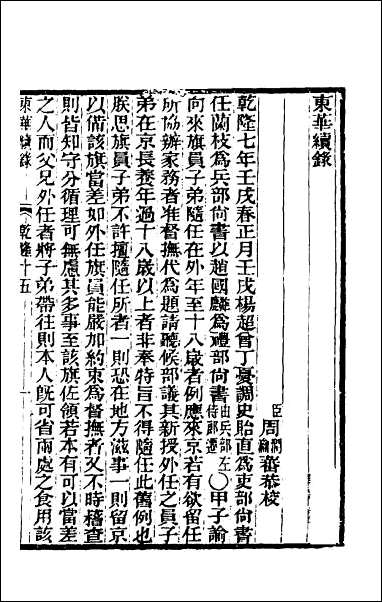 東華續錄
臣周潤蕃 周瀹蕃恭校
乾隆七年壬戌春正月壬戌楊超曾丁憂調史貽直為吏部尙書
任蘭枝為兵部尙書以趙國麟為禮部尙書由兵部左侍郞遷〇甲子諭
向來旗員子弟隨任在外年至十八歲者例應來京若有欲留任
所協辦家務者准督撫代為題請聽候部議其新授外任之員子
弟在京長養年過十八歲以上者非奉特旨不得隨任此舊例也
朕思旗員子弟不許擅隨任所者一則恐在地方滋事一則留京
以備該旗當差如外任旗員能嚴加約束為督撫者又不時稽查
則皆知守分循理可無慮其多事至該旗佐領若本有可以當差
之人而父兄外任者將子弟帶往則本人旣可省兩處之食用該
東華續錄 乾隆十五 一